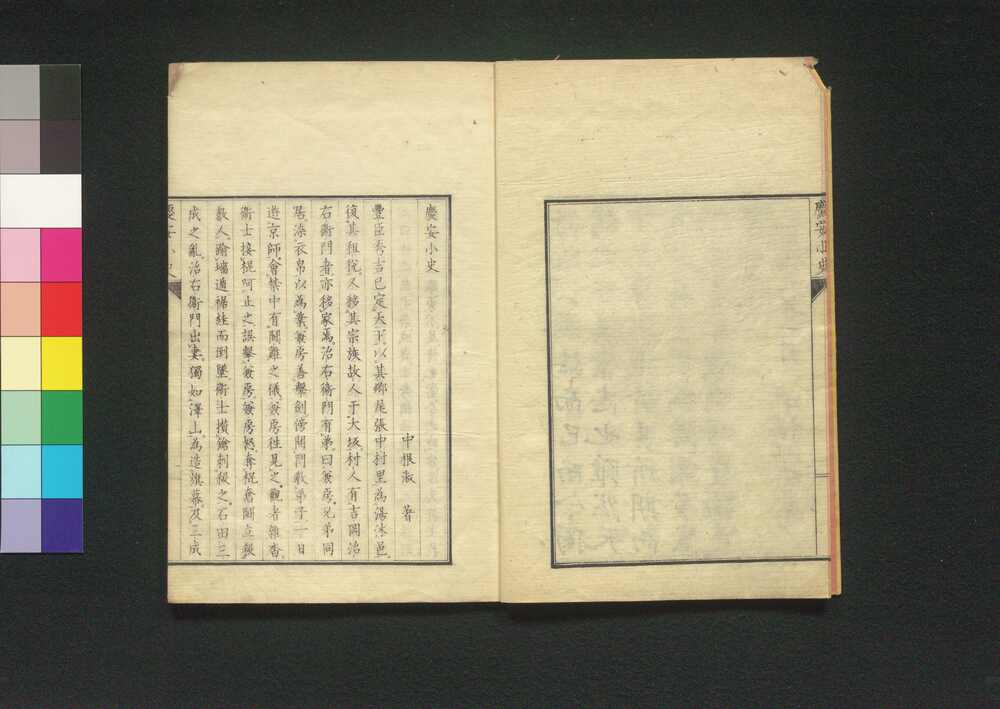 慶安小史
慶安小史
中根淑 著
豐臣秀吉已定天下以其鄉尾張中村里為湯沐邑
復其租稅又移其宗族故人于大坂村人有吉岡治
右衛門者亦移家焉治右衛門有弟曰兼房兄弟同
居染衣帛以為業兼房善擊劍傍開門教弟子一日
遊京師會禁中有鬪雞之儀兼房往見之觀者雜沓
衛士揍棍呵止之誤擊兼房兼房怒奪棍奮鬪立殺
數人踰墻遁裾絓而倒墜衛士攢鎗刺殺之石田三
成之亂治右衛門出妻獨如澤山為造旗幕及三成
慶安小史